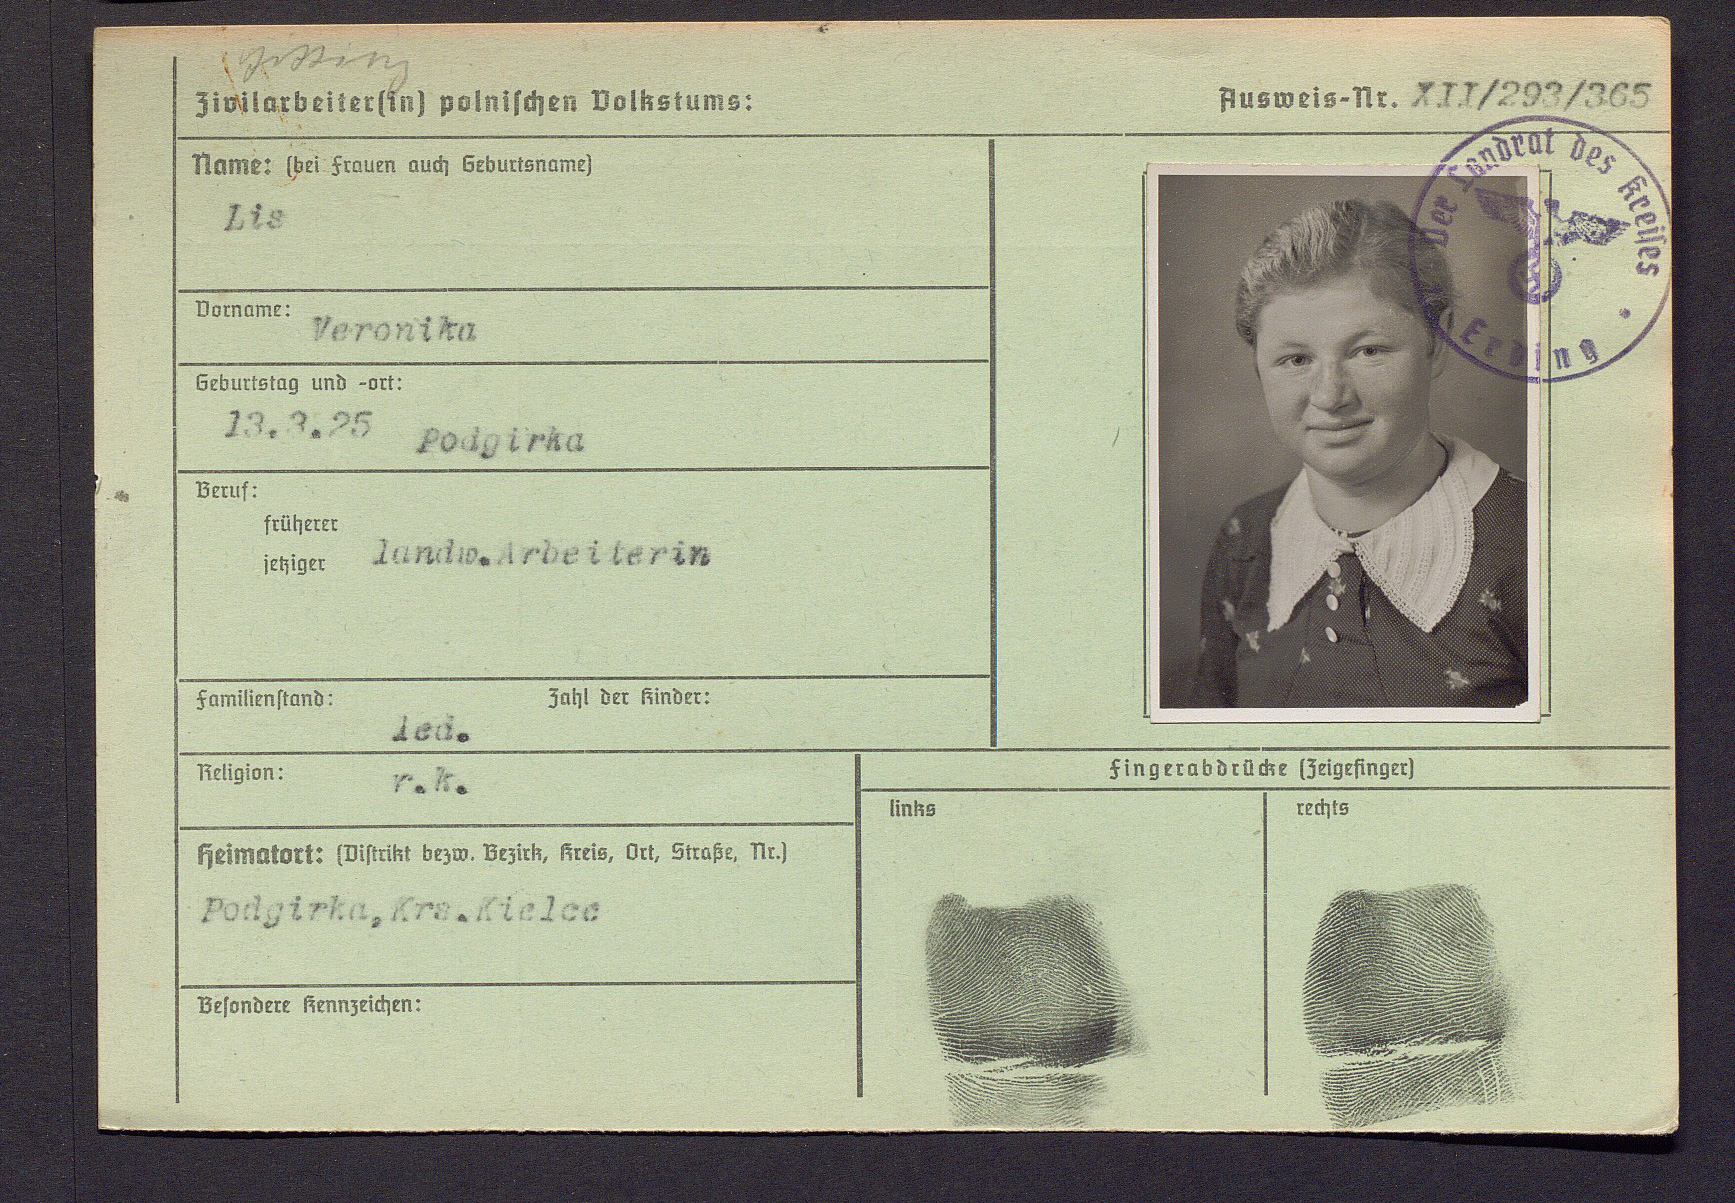 Zivilarbeiter(in) polnischen Volkstums:
Ausweis-Nr. XII/293/365
Name: (bei Frauen auch Geburtsname)
Lis
Vorname:
Veronika
Geburtstag und -ort:
13.3.25 Podgirka
Beruf:
früherer
jetziger landw.Arbeiterin
Familienstand: Zahl der Kinder:
led.
Religion:
r.k.
Heimatort: (Distrikt bezw. Bezirk, Kreis, Ort, Straße, Nr.)
Podgirka,Krs.Kielce
Besondere Kennzeichen:
Der Landrat des Kreises
Erding
Fingerabdrücke (Zeigefinger)
links
rechts